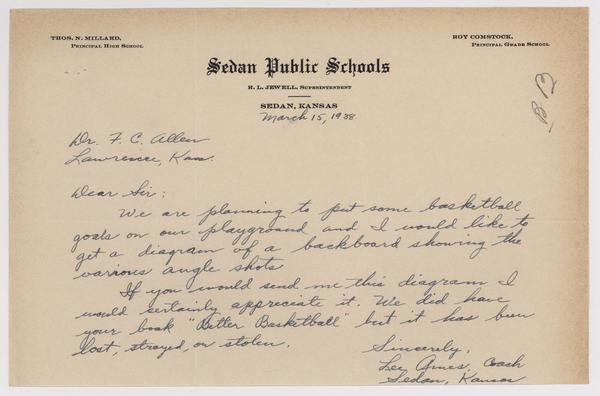 THOS. N. MILLARD,
PRINCIPAL HIGH SCHOOL
ROY COMSTOCK,
PRINCIPAL GRADE SCHOOL
Sedan Public Schools
H. L. JEWELL, SUPERINTENDENT
SEDAN, KANSAS
March 15, 1938
B B
Dr. F. C. Allen
Lawrence, Kan.
Dear Sir:
We are planning to put some basketball
goals on our playground and I would like to
get a diagram of a backboard showing the
various angle shots
If you would send me this diagram I
would certainly appreciate it. We did have
your book "Better Basketball" but it has been
lost, strayed, or stolen.
Sincerely,
Lee Ames, Coach
Sedan, Kansas